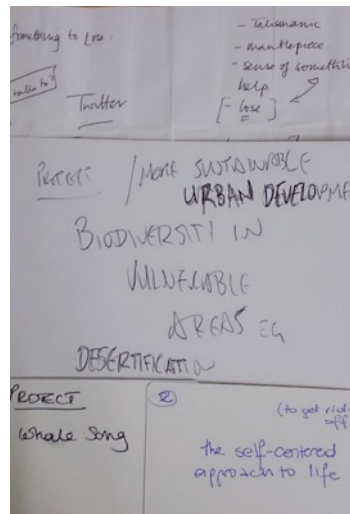 Something to Lose:
- Talismanic
- mantlepiece
- sense of somethin
help
[- lose ]
Twitter
PROTECT / MORE SUSTAINABLE
URBAN DEVELOPME
BIODIVERSITI IN
VULNERABLE
AREAS EG
DESERTIFICATION
PROTECT
Whale Song
2
(to get rid
off
the self-centered
approach to life